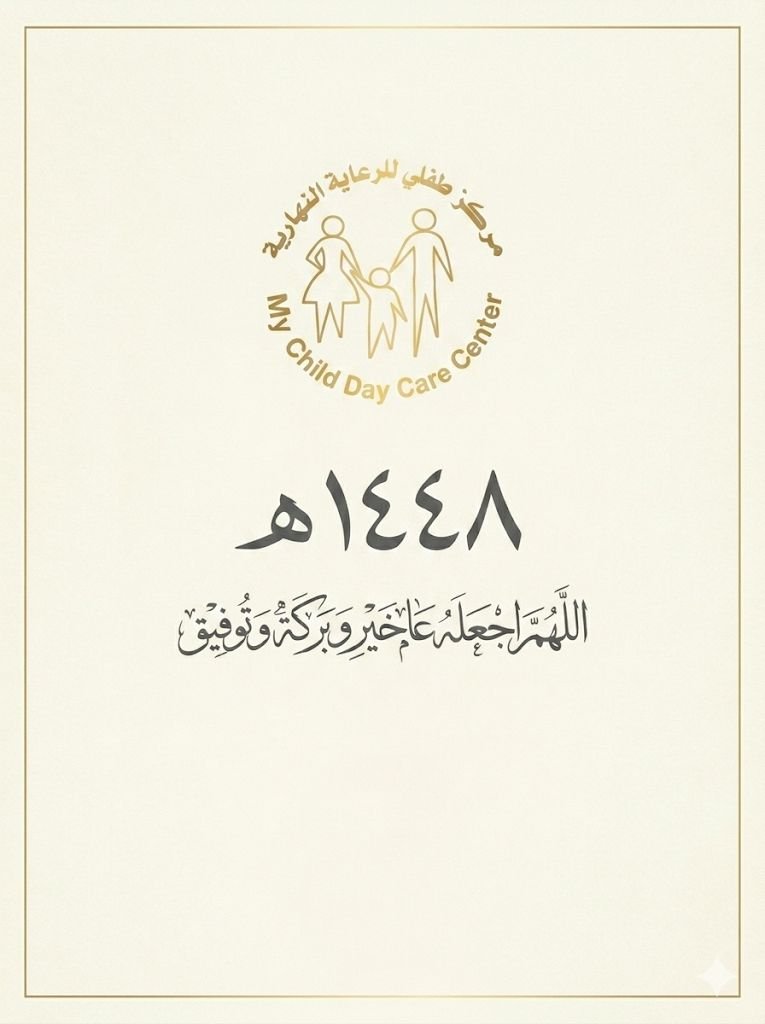 مركز طفلي للرعاية النهارية
My Child Day Care Center
١٤٤٨هـ
اللَّهُمَّ اجْعَلْهُ عَامَ خَيْرٍ وَبَرَكَةٍ وَتَوفِيْق